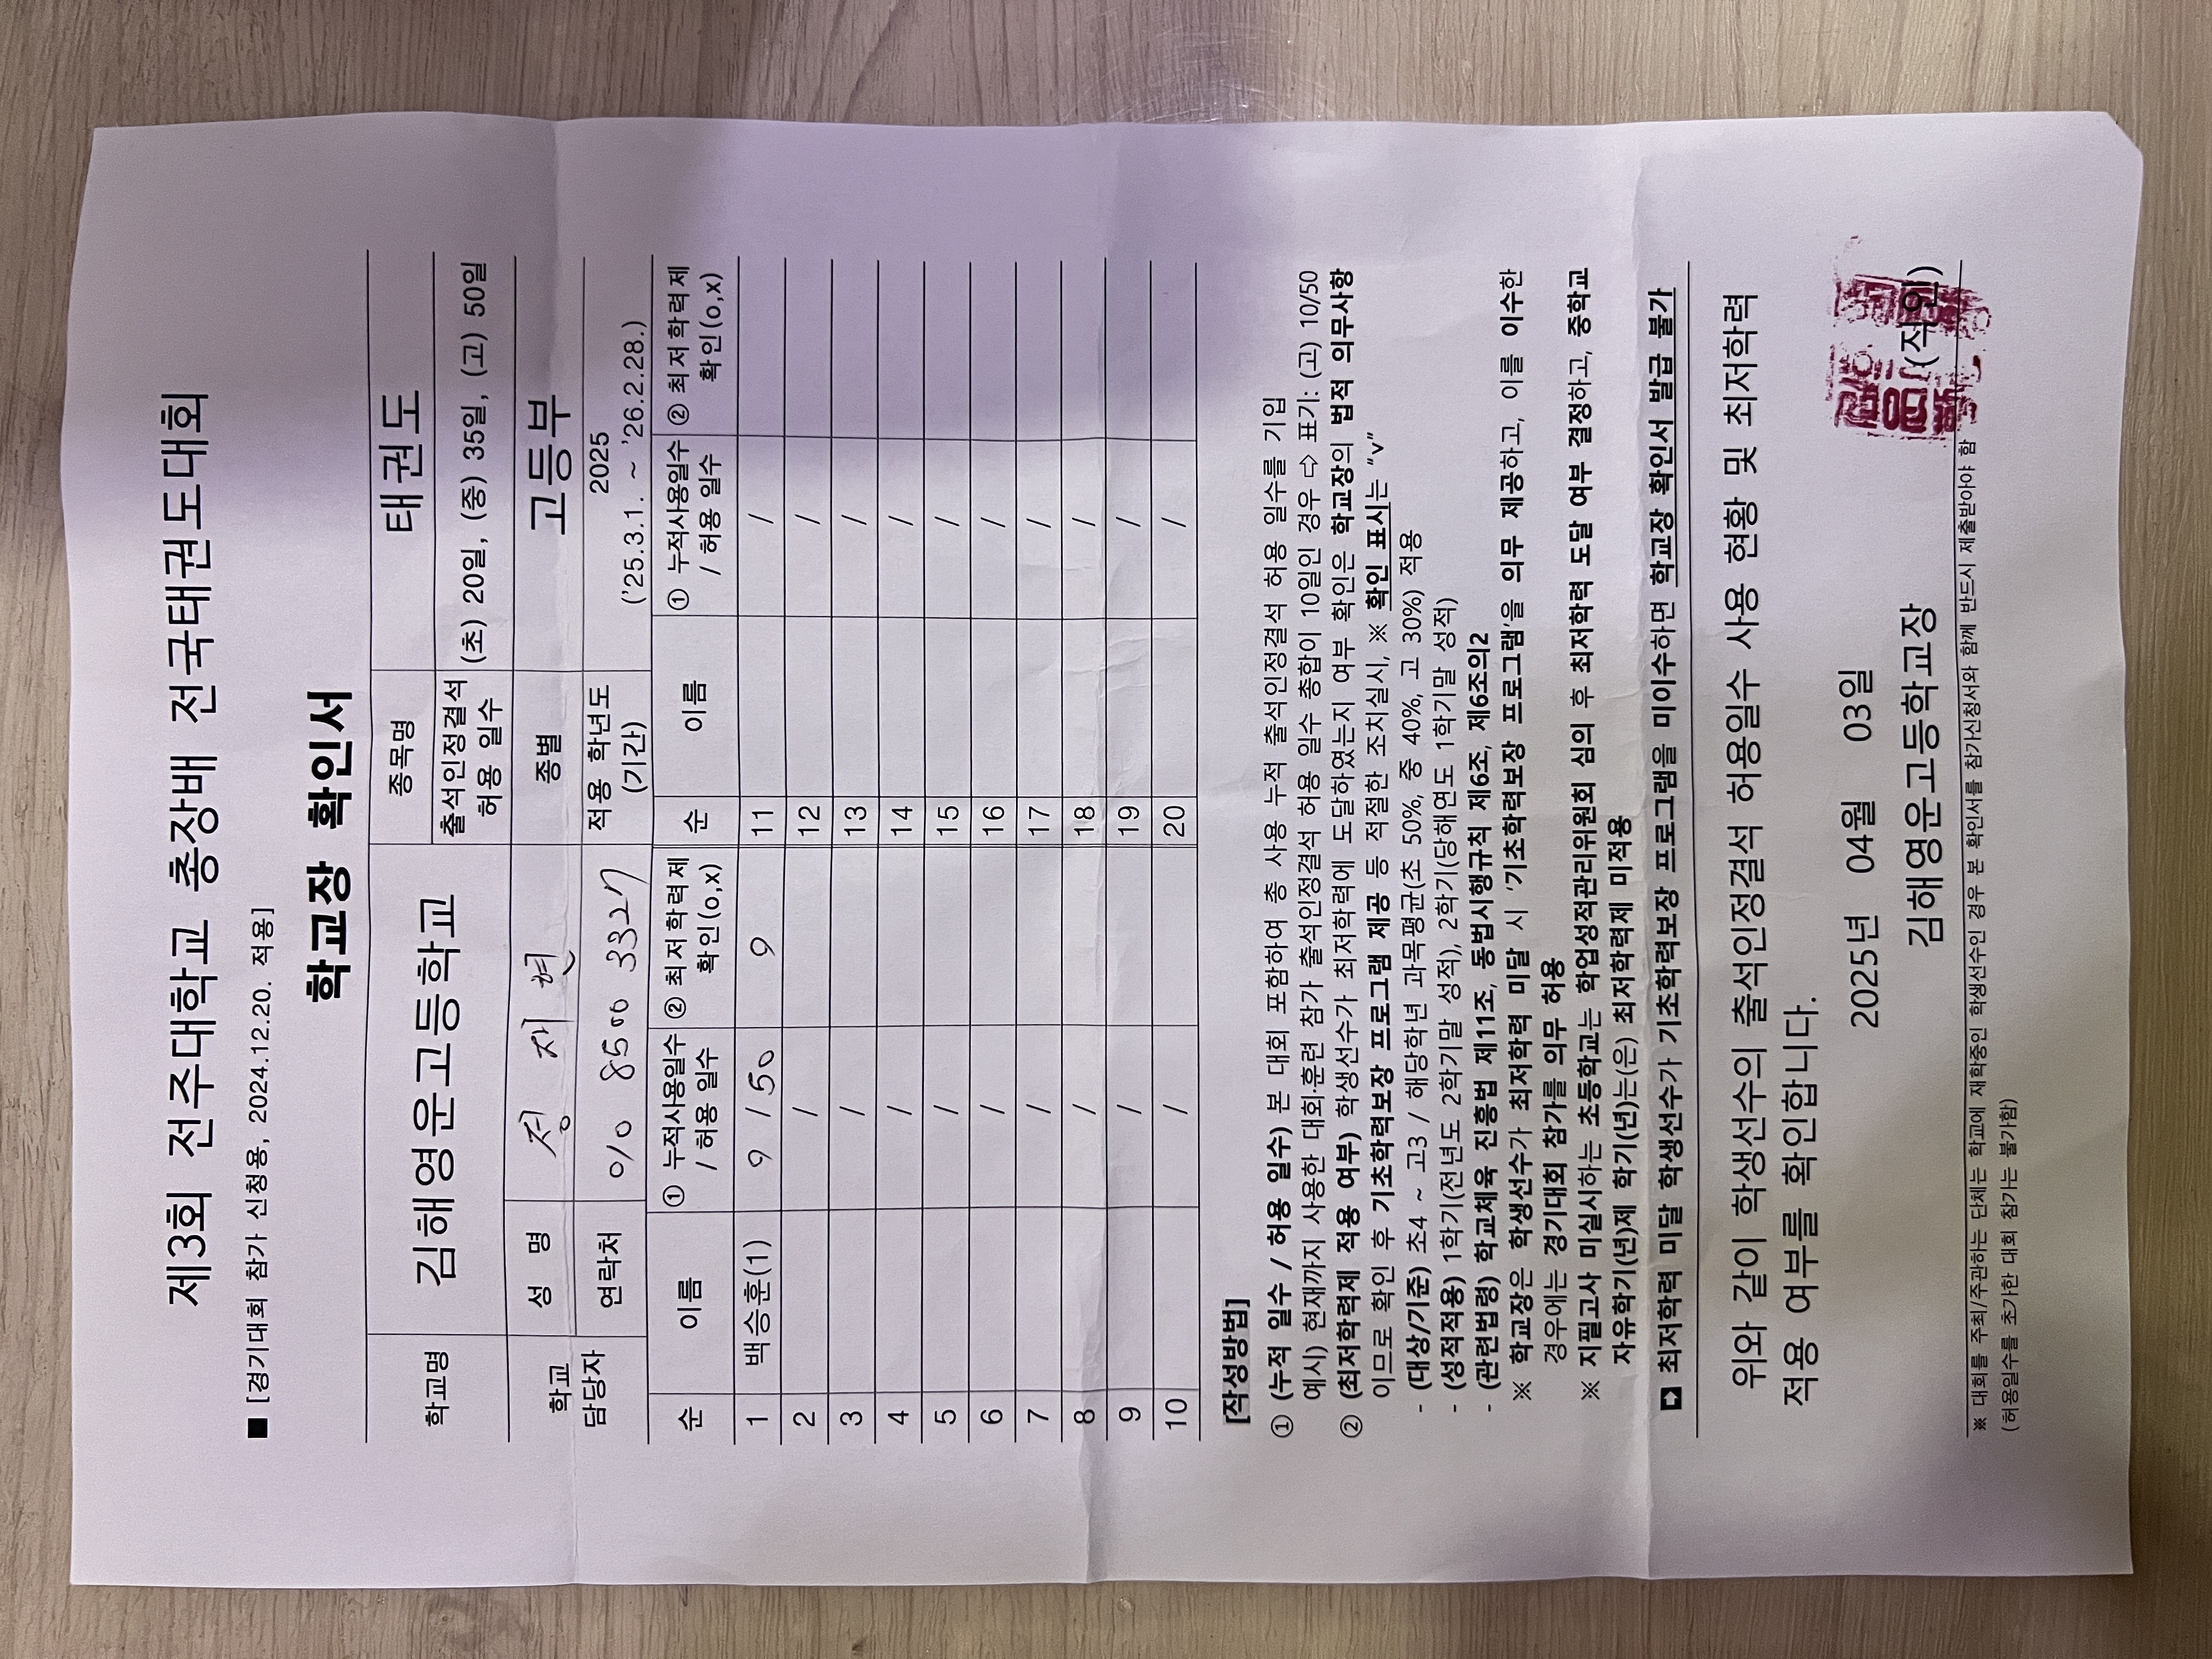 제3회 전주대학교 총장배 전국태권도대회
■ [경기대회 참가 신청용, 2024.12.20. 적용]
학교장 확인서
학교명 김해영운고등학교 종목명 태권도
출석인정결석 허용 일수 (초) 20일, (중) 35일, (고) 50일
학교 담당자 성 명 정재현 종별 고등부
연락처 010 8500 3327 적용 학년도 (기간) 2025 ('25.3.1. ~ '26.2.28.)
순 이름 ① 누적사용일수 / 허용 일수 ② 최저학력제 확인(o,x) 순 이름 ① 누적사용일수 / 허용 일수 ② 최저학력제 확인(o,x)
1 백승훈(1) 9 / 50 11 /
2 / 12 /
3 / 13 /
4 / 14 /
5 / 15 /
6 / 16 /
7 / 17 /
8 / 18 /
9 / 19 /
10 / 20 /
[작성방법]
① (누적 일수 / 허용 일수) 본 대회 포함하여 총 사용 누적 출석인정결석 허용 일수를 기입
예시) 현재까지 사용한 대회·훈련 참가 출석인정결석 허용 일수 총합이 10일인 경우 ⇨ 표기: (고) 10/50
② (최저학력제 적용 여부) 학생선수가 최저학력에 도달하였는지 여부 확인은 학교장의 법적 의무사항
이므로 확인 후 기초학력보장 프로그램 제공 등 적절한 조치실시, ※ 확인 표시는 "v"
- (대상/기준) 초4 ~ 고3 / 해당학년 과목평균(초 50%, 중 40%, 고 30%) 적용
- (성적적용) 1학기(전년도 2학기말 성적), 2학기(당해연도 1학기말 성적)
- (관련법령) 학교체육 진흥법 제11조, 동법시행규칙 제6조, 제6조의2
※ 학교장은 학생선수가 최저학력 미달 시 '기초학력보장 프로그램'을 의무 제공하고, 이를 이수한
경우에는 경기대회 참가를 의무 허용
※ 지필고사 미실시하는 초등학교는 학업성적관리위원회 심의 후 최저학력 도달 여부 결정하고, 중학교
자유학기(년)제 학기(년)는(은) 최저학력제 미적용
➡ 최저학력 미달 학생선수가 기초학력보장 프로그램을 미이수하면 학교장 확인서 발급 불가
위와 같이 학생선수의 출석인정결석 허용일수 사용 현황 및 최저학력
적용 여부를 확인합니다.
2025년 04월 03일
김해영운고등학교장 (직인)
※ 대회를 주최/주관하는 단체는 학교에 재학중인 학생선수인 경우 본 확인서를 참가신청서와 함께 반드시 제출받아야 함
(허용일수를 초과한 대회 참가는 불가함)